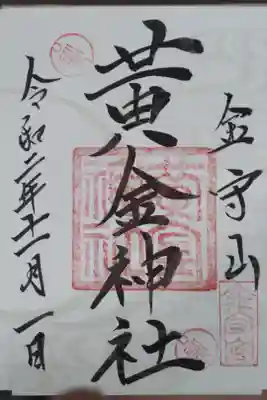 金守山
黄金神社
令和二年十一月一日